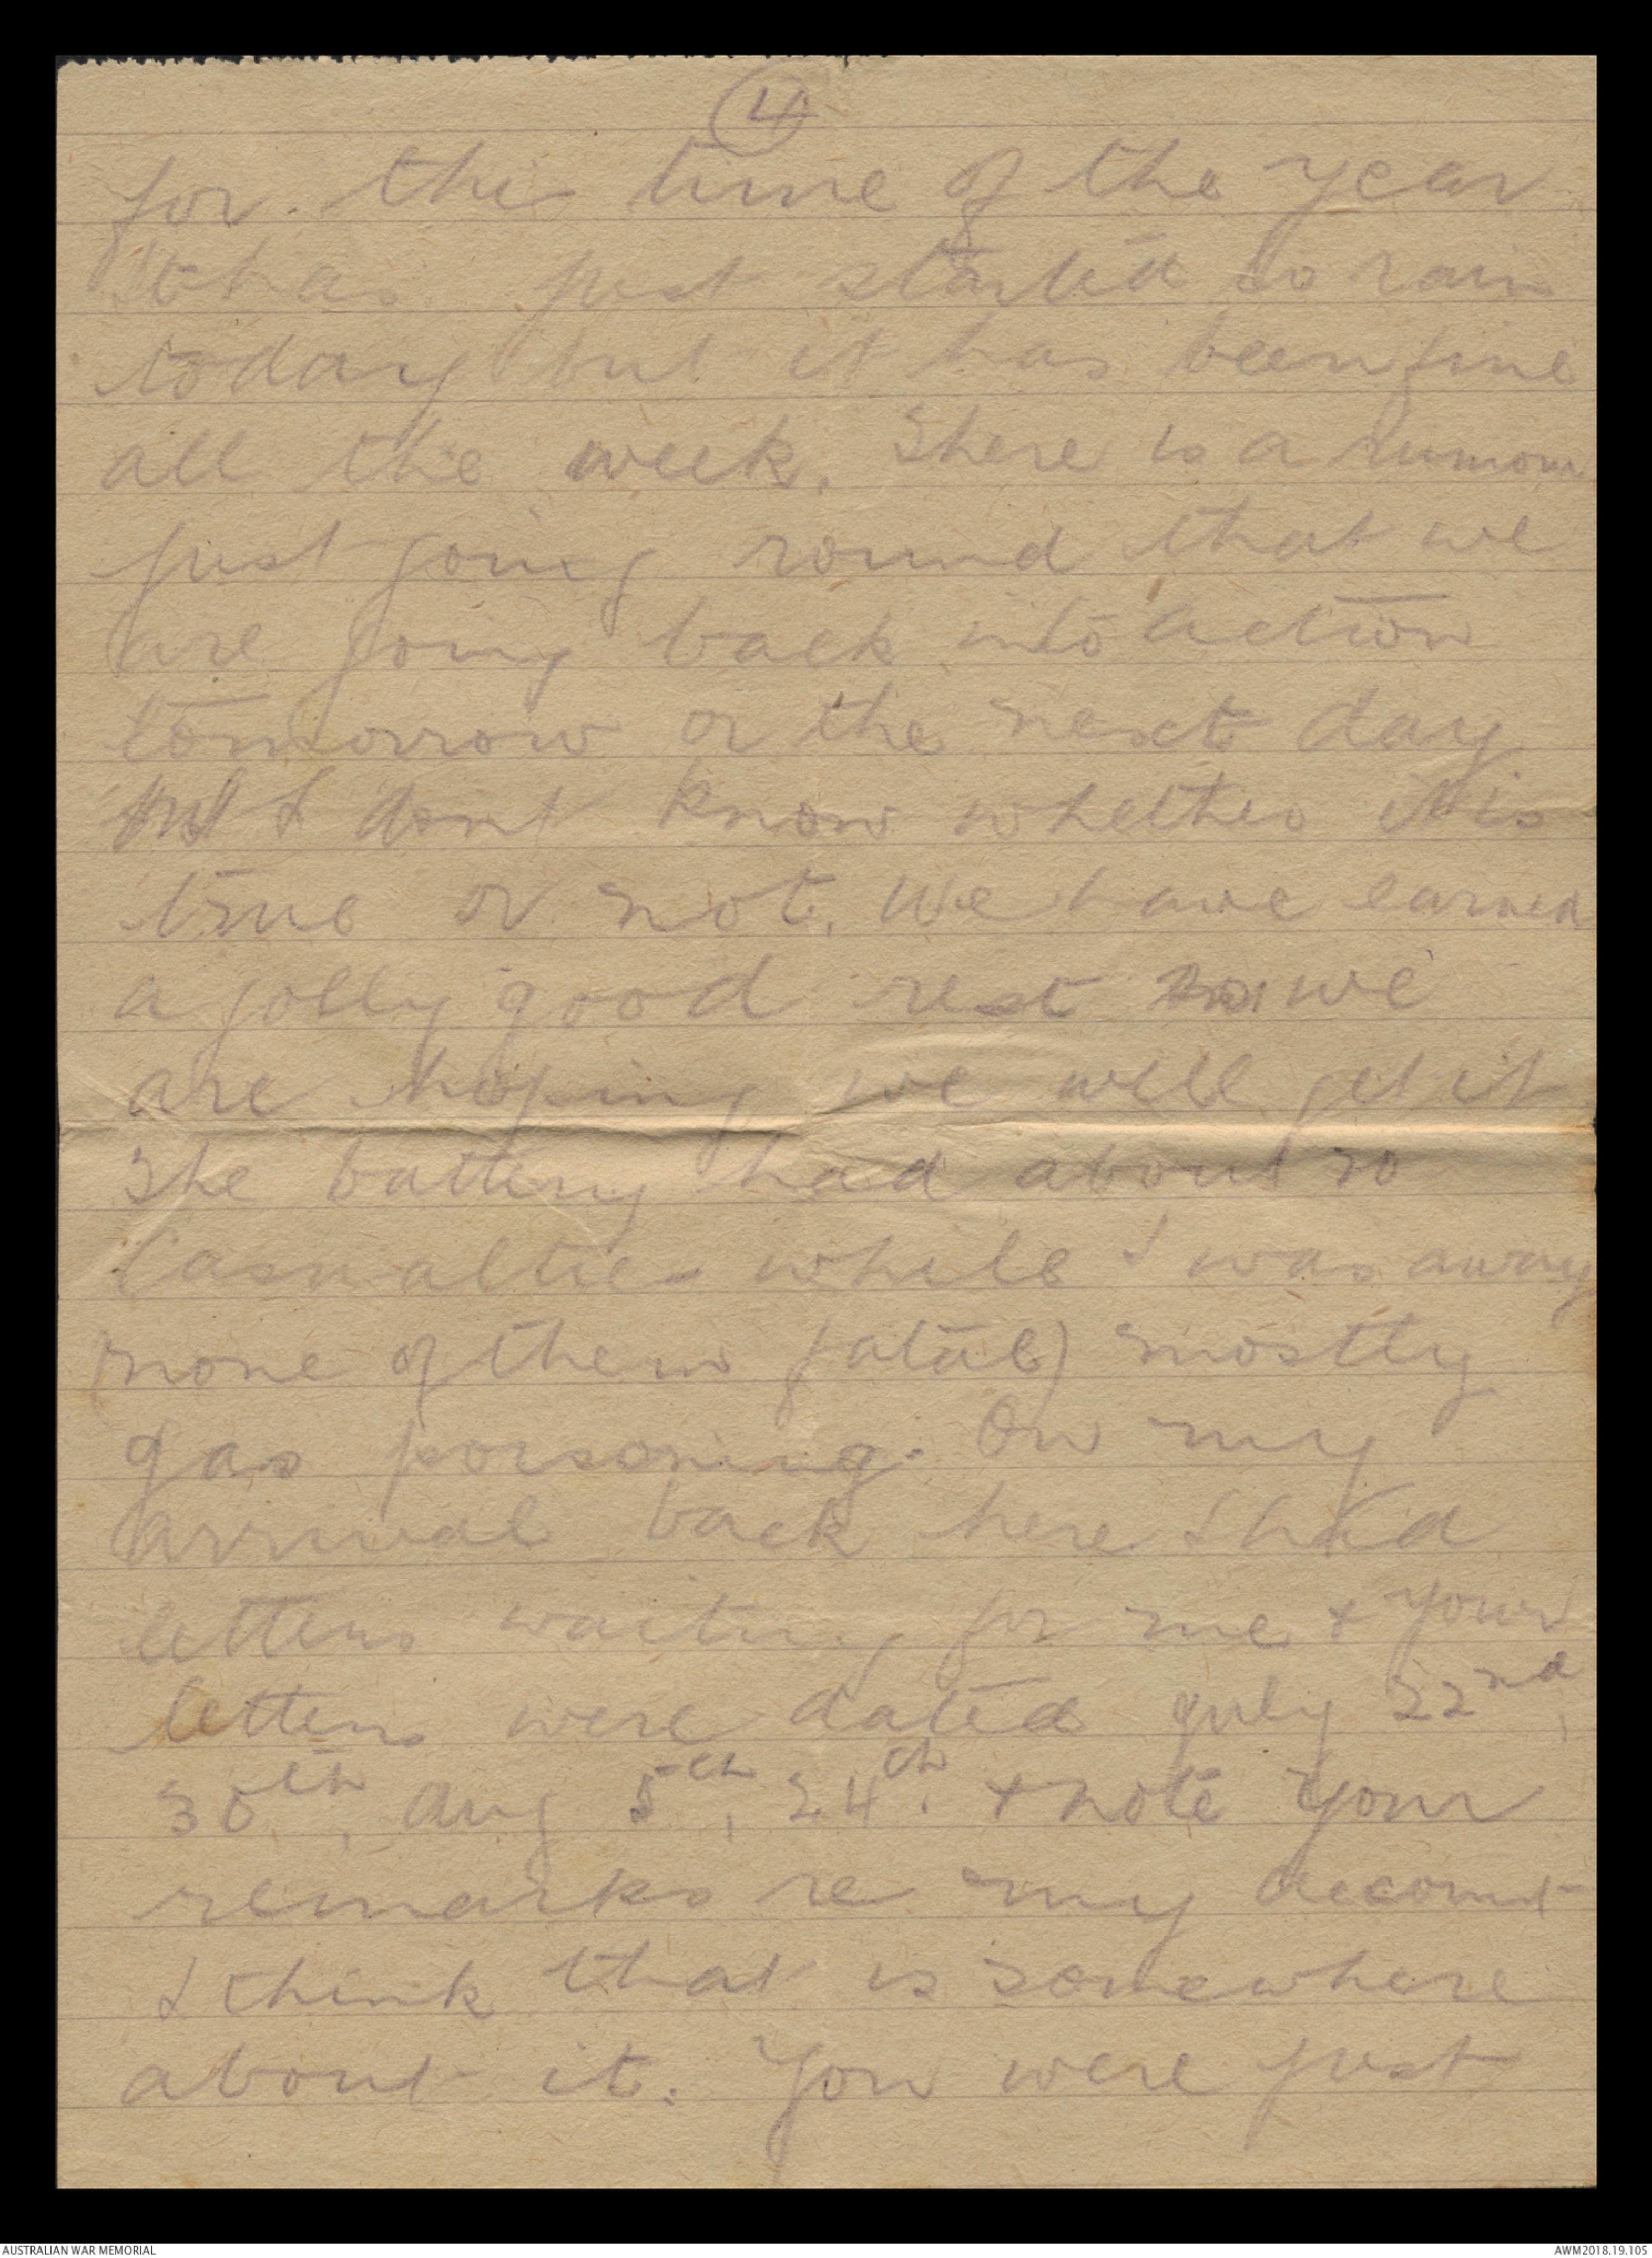 4
for this time of the year
It has just started to rain
today but it has been fine
all the week. There is a rumour
just going round that we
are going back into action
tomorrow or the next day
but I dont know whether it is
true or not. We have earned
a jolly good rest we
are hoping we will get it
The battery had about 20
casualties while I was away
(none of them fatal) mostly
gas poisoning. On my
arrival back here I had
letters waiting for me + your
letters were dated July 22nd,
30th, Aug 5th, 24th. + note your
remarks re my account
I think that is somewhere
about it. You were just
AUSTRALIAN WAR MEMORIAL
AWM2018.19.105